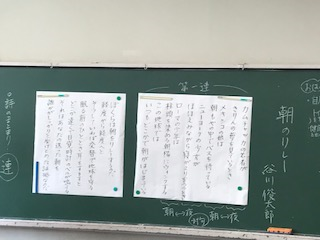 朝のリレー
谷川俊太郎
第一連
カムチャッカの若者が
きりんの夢を見ているとき
メキシコの娘は
朝もやの中でバスを待っている
ニューヨークの少女が
ほほえみながら寝がえりをうつとき
ローマの少年は
柱頭を染める朝陽にウインクする
この地球では
いつもどこかで朝がはじまっている
朝⇔夜
(対句)
朝⇔夜
ぼくらは朝をリレーするのだ
経度から経度へと
そうしていわば交替で地球を守る
眠る前のひととき耳をすますと
どこか遠くで目覚時計のベルが鳴ってる
それはあなたの送った朝を
誰かがしっかりと受けとめた証拠なのだ
詩のまとまり
連